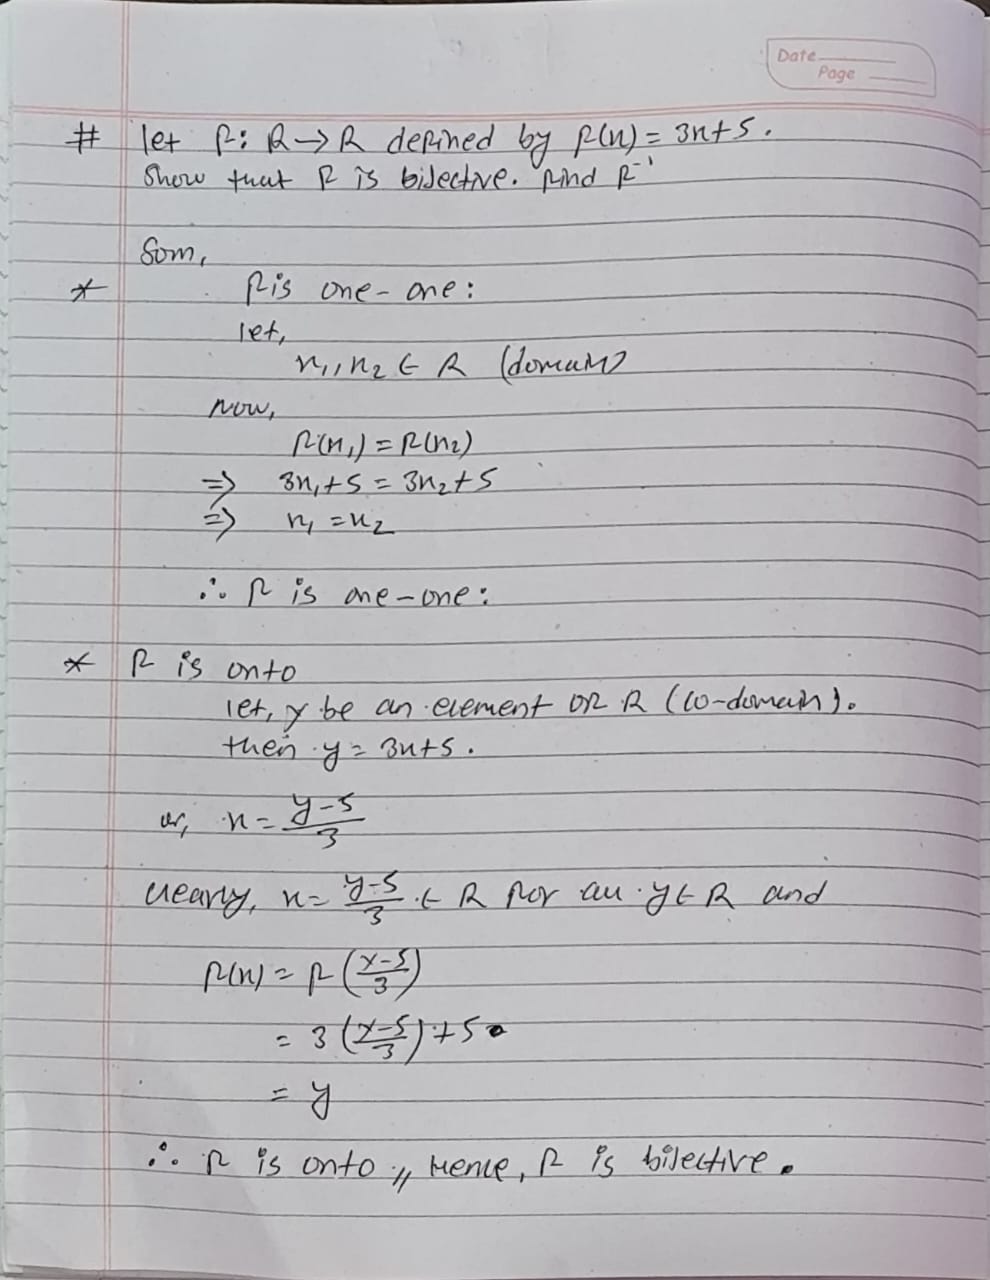 Date
Page
# let f: R→R defined by f(x) = 3x+5.
Show that f is bijective. find f⁻¹
Soln,
* f is one-one:
let,
x₁, x₂ ∈ R (domain)
now,
f(x₁) = f(x₂)
⇒ 3x₁+5 = 3x₂+5
⇒ x₁ = x₂
∴ f is one-one:
* f is onto
let, y be an element of R (co-domain).
then y = 3x+5.
or, x = (y-5)/3
clearly, x = (y-5)/3 ∈ R for all y ∈ R and
f(x) = f((y-5)/3)
= 3((y-5)/3)+5
= y
∴ f is onto,, Hence, f is bijective.